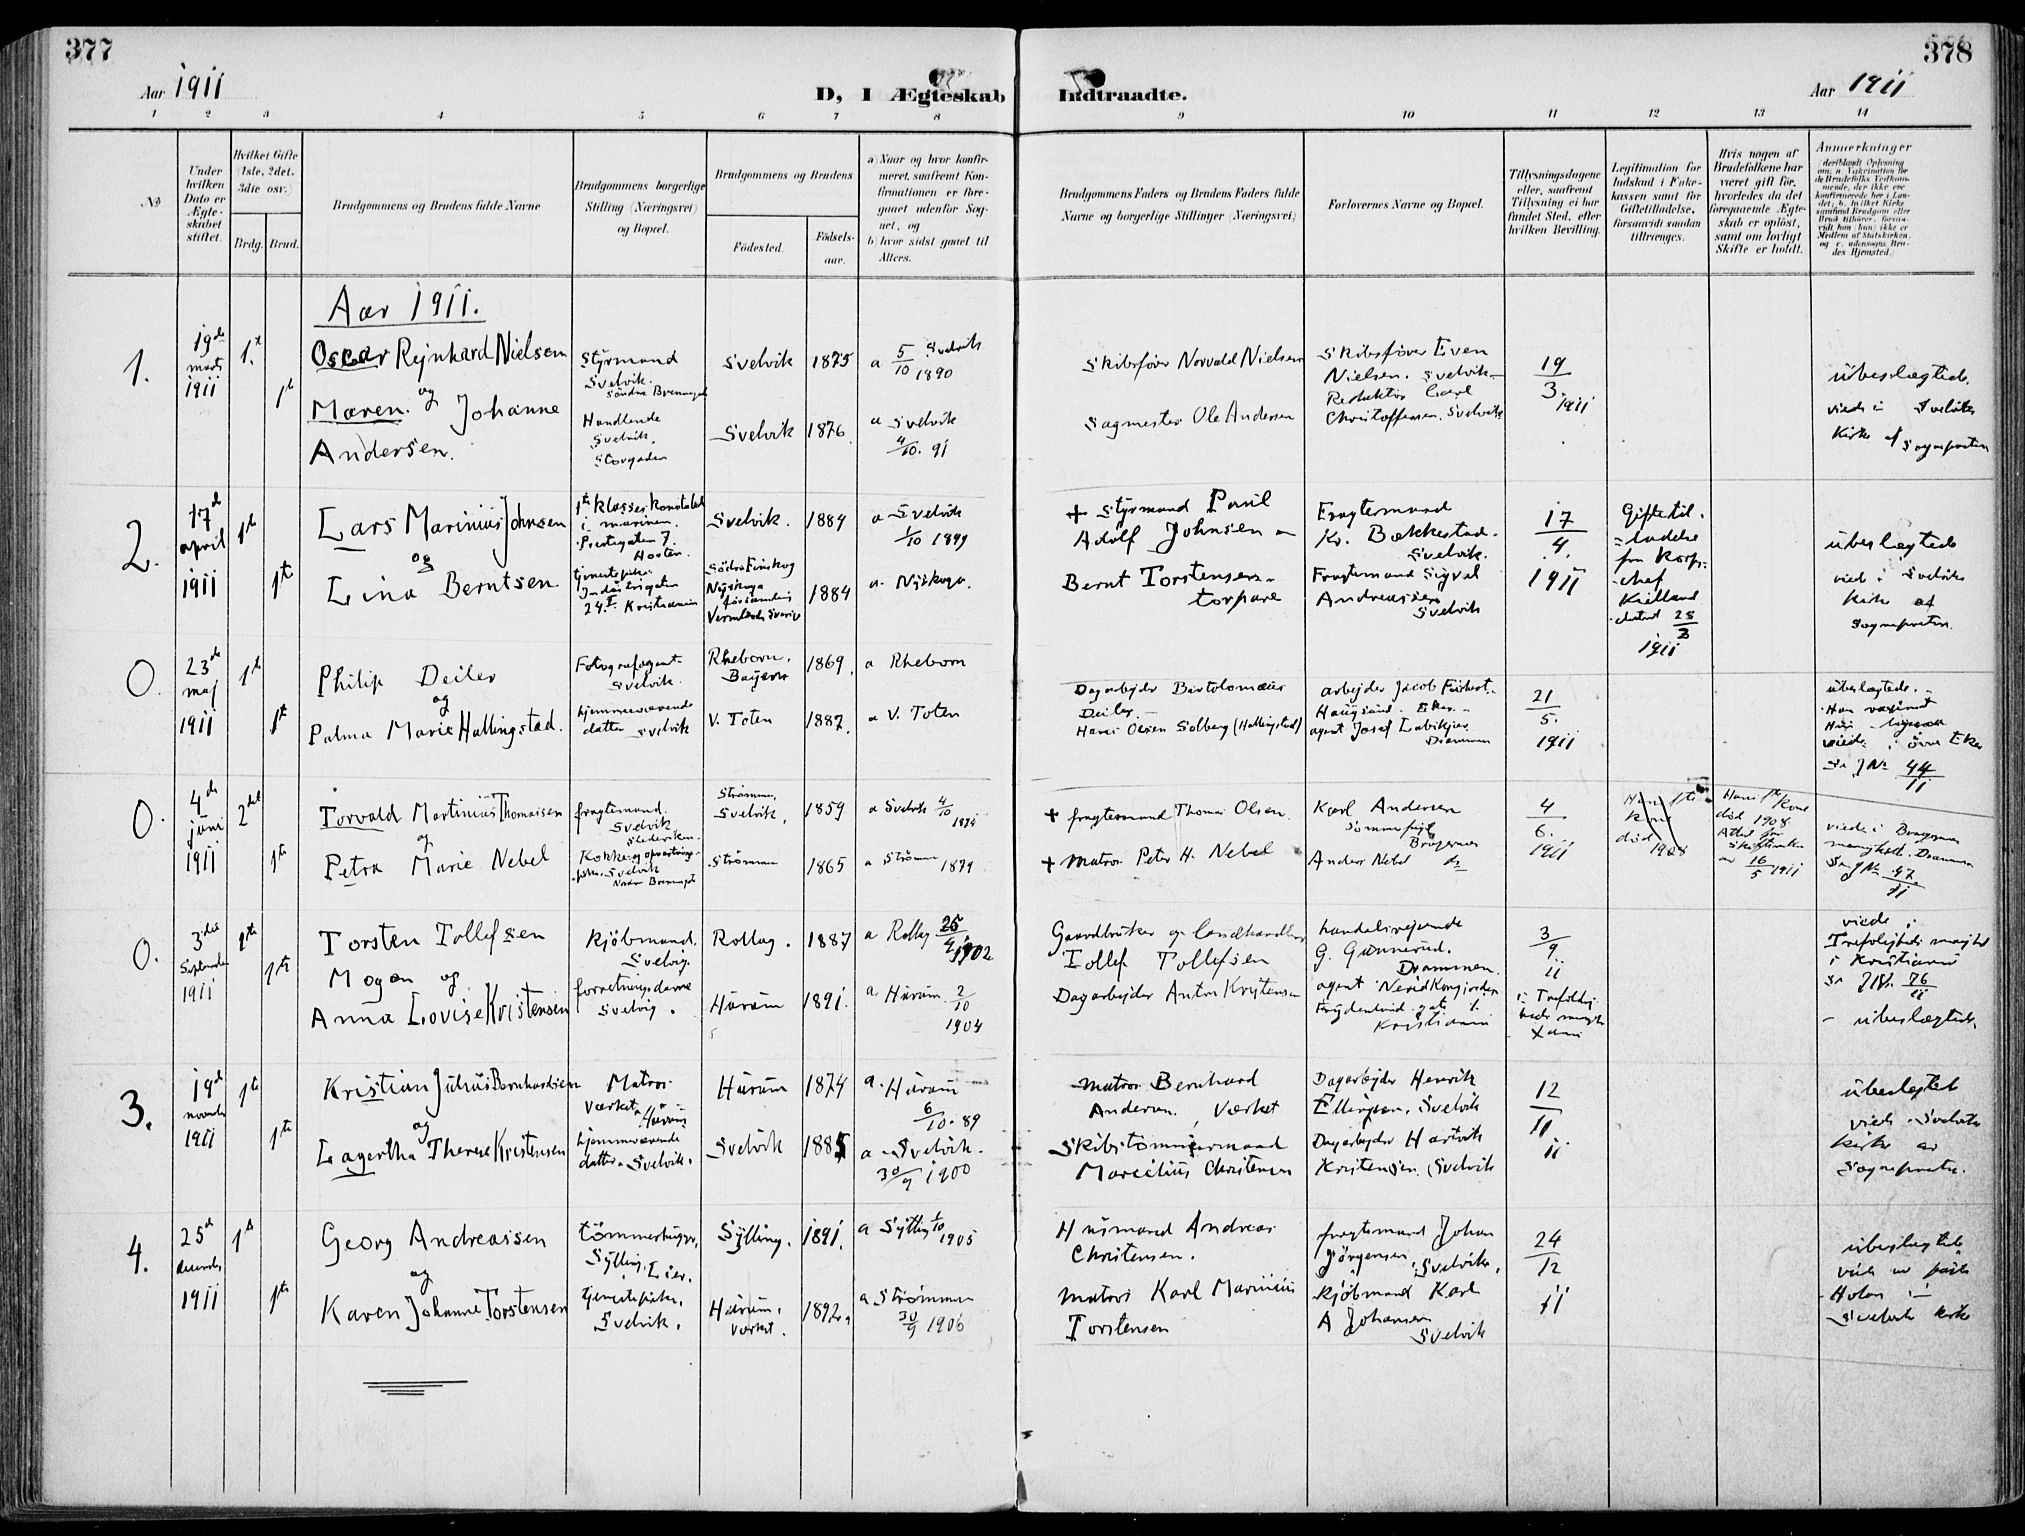 377
378
Aar 1911
D, I Ægteskab Indtraadte.
Aar 1911
1 2 3 4 5 6 7 8 9 10 11 12 13 14
No
Under hvilken Dato er Ægteskabet stiftet.
Hvilket Gifte (1ste, 2det, 3die osv.)
Brdg. Brud.
Brudgommens og Brudens fulde Navne
Brudgommens borgerlige Stilling (Næringsvei) og Bopæl.
Brudgommens og Brudens
Fødested.
Fødsels-aar.
a) Naar og hvor konfirmeret, saafremt Konfirmationen er foregaaet udenfor Sognet, og
b) hvor sidst gaaet til Alters.
Brudgommens Faders og Brudens Faders fulde Navne og borgerlige Stillinger (Næringsvei)
Forlovernes Navne og Bopæl.
Tillysningsdagene eller, saafremt Tillysning ei har fundet Sted, efter hvilken Bevilling.
Legitimation for Indskud i Enkekassen samt for Giftetilladelse, forsaavidt saadan tiltrænges.
Hvis nogen af Brudefolkene har været gift før, hvorledes da det foregaaende Ægteskab er opløst, samt om lovligt Skifte er holdt.
Anmerkninger
Aar 1911.
1.
19de marts 1911
1.
Oscar Rejnhard Nielsen
og
Maren Johanne
Andersen.
Styrmand
Svelvik.
Handlende
Svelvik.
Storgaden
Svelvik 1875 a 5/10 1890 Svelvik
Svelvik 1876. a Svelvik
4/10. 91
Skibsfører Norvald Nielsen
Sagmester Ole Andersen
Skibsfører Even
Nielsen. Svelvik
Redaktør Carl
Christoffersen. Svelvik
19/3 1911
übeslægtede.
viede i Svelvik
Kirke af Sognepresten
2.
17de april 1911
1te
1te
Lars Marinius Johnsen
og
Lina Berntsen.
1te Klasses Konstabel
i marinen.
Prestegaten 7.
Horten.
tjenestepike
24 I. Kristiania
Svelvik. 1884 a Svelvik
1/10 1899
Södra Finskog
Nyskoga
församling
Vermlands Sverige
1884 a. Nyskoga.
+ Styrmand Paul
Adolf Johnsen
Bernt Torstensen
torpare
Fragtemand
Kr. Bækkestad.
Svelvik.
Fragtemand Sigval
Andreassen
Svelvik
17/4. 1911
Giftetil-
ladelse
fra Korps-
chef
Kielland
datert 25/3
1911
übeslægtede
viede i Svelvik
kirke af
Sognepresten.
0.
23de maj 1911
1te
1te
Philip Deiler
og
Palma Marie Hallingstad.
Fotografagent
Svelvik.
hjemmeværende
datter Svelvik
Rheborn.
Bayern
1869. a Rheborn
V. Toten 1887. a V. Toten
Dagarbejder Bartolomæus
Deiler.
Hans Olsen Solberg (Hallingstad)
arbejder Jacob
Haugsund. Eker.
agent Josef
Drammen
21/5. 1911
übeslægtede.
viede i övre Eker
Se JNr 44/11
0.
4de juni 1911
2det
1te
Torvald Martinius Thomassen
og
Petra Marie Nebel
fragtemand.
Svelvik
Svelvik
Strømmen,
Svelvik, 1859 a Svelvik 4/10 1874
Strømmen 1865 a Strømmen 1879
+ fragtemand Thomas Olsen.
+ Matros Peter H. Nebel
Karl Andersen
Anders Nebel do
4/6. 1911
Hans 1te
kone
død
1908
Hans 1te Kone
død 1908
16/5 1911
viede i Bragernes
menighed. Drammen
Se JNr 47/11
0.
3die September 1911
1te
1te
Torsten Tollefsen
Mogan og
Anna Lovise Kristensen
Kjøbmand.
Svelvig.
forretningsdame
Svelvig.
Rollag. 1887 a Rollag 25/4 1902
Hürüm 1891. a. Hürüm 2/10
1904
Gaardbruker og landhandler
Tollef Tollefsen
Dagarbejder Anton Kristensen
handelsrejsende
G. Gunnerud.
Drammen.
agent
Kristiania
3/9 11
i Trefoldig-
heds
viede i
Trefoldigheds menighed
i Kristiania
Se JNr. 76/11
übeslægtede.
3.
19de novembr 1911
1te
1te
Kristian Julius Bernhardsen
og
Lagertha Therese Kristensen
Matros
Værket
Hürüm
hjemmeværende
datter. Svelvik.
Hürüm 1874 a. Hürüm
6/10. 89
Svelvik 1885 a Svelvik.
30/9 1900
Matros Bernhard
Andersen. Værket
Skibstömmermand
Marcilius Christensen
Dagarbejder Henrik
Ellingsen. Svelvik
Dagarbejder Hartvik
Kristensen. Svelvik
12/11 11
übeslegtet
viede Svelvik
kirke av
Sognepresten.
4.
25de december 1911
1te
1te
Georg Andreassen
og
Karen Johanne Torstensen
tömmerhugger,
Sylling, Lier.
Tjenestepike,
Svelvik.
Sylling. 1891. a Sylling 1/10 1905
Hürüm,
Værket. 1892. a Strømmen
30/9 1906
Husmand Andreas
Christensen.
Matros Karl Marinius
Torstensen
fragtemand Johan
Jörgensen, Svelvik,
Kjöbmand Karl
A Johansen
Svelvik
24/12 11
übeslegtede
Holm i
Svelvik kirke